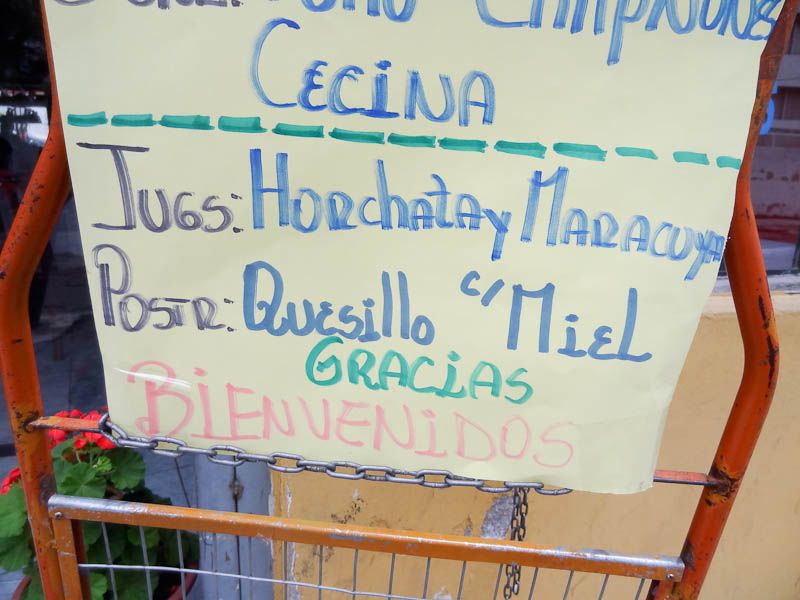 CHAMPIÑONES
CECINA
JUGS: HORCHATA Y MARACUYA
POSTR: QUESILLO C/ MIEL
GRACIAS
BIENVENIDOS